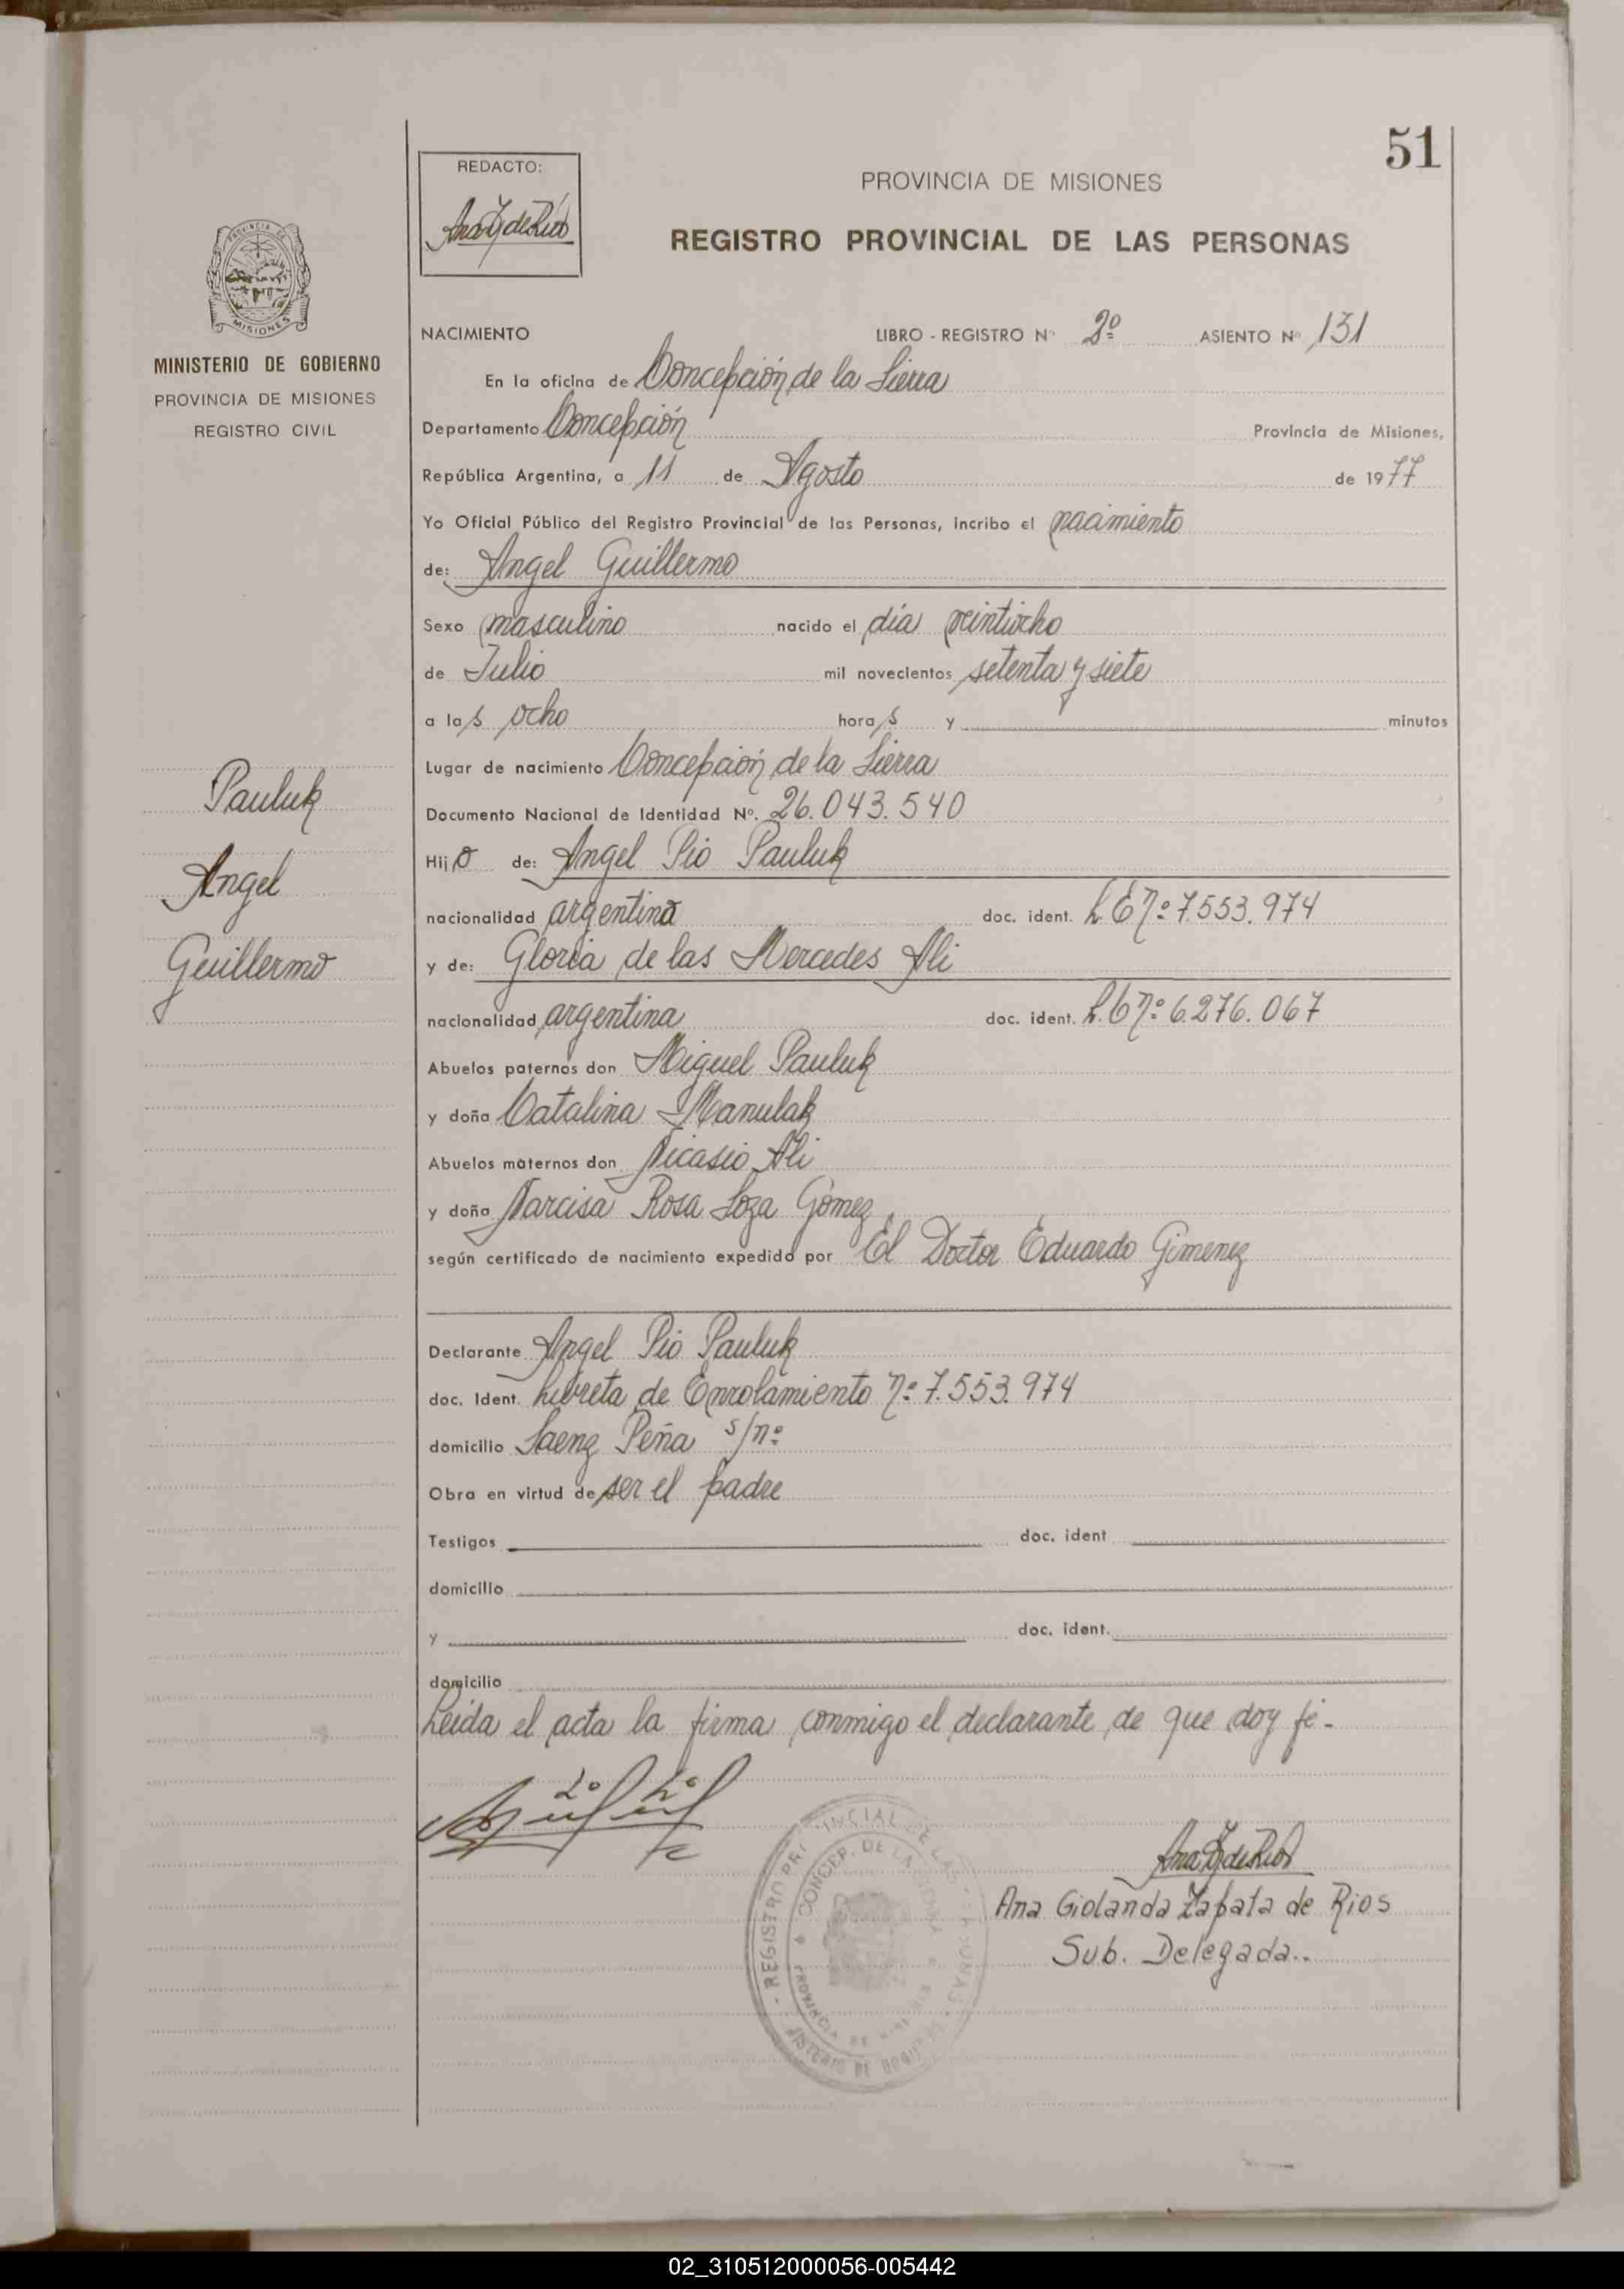 51
REDACTO:
PROVINCIA DE MISIONES
REGISTRO PROVINCIAL DE LAS PERSONAS
MISIONES
MINISTERIO DE GOBIERNO
PROVINCIA DE MISIONES
REGISTRO CIVIL
NACIMIENTO LIBRO - REGISTRO Nº 2º ASIENTO Nº 131
En la oficina de Concepción de la Sierra
Departamento Concepción Provincia de Misiones,
República Argentina, a 11 de Agosto de 1977
Yo Oficial Público del Registro Provincial de las Personas, incribo el nacimiento
de: Angel Guillermo
Sexo masculino nacido el día veintiocho
de Julio mil novecientos setenta y siete
a las ocho horas y minutos
Lugar de nacimiento Concepción de la Sierra
Documento Nacional de Identidad Nº. 26.043.540
Hijo de: Angel Pio Pauluk
nacionalidad argentina doc. ident. L.E nº 7.553.974
y de: Gloria de las Mercedes Ali
nacionalidad argentina doc. ident. L.C nº 6.276.067
Abuelos paternos don Miguel Pauluk
y doña Catalina Manulak
Abuelos maternos don Nicasio Ali
y doña Narcisa Rosa Loza Gómez
según certificado de nacimiento expedido por El Doctor Eduardo Gimenez
Pauluk
Angel
Guillermo
Declarante Angel Pio Pauluk
doc. Ident. Libreta de Enrolamiento nº 7.553.974
domicilio Saenz Peña s/nº
Obra en virtud de ser el padre
Testigos doc. ident
domicilio
y doc. ident.
domicilio
Leida el acta la firma conmigo el declarante de que doy fé.
Ana Giolanda Zapata de Rios
Sub. Delegada..
02_310512000056-005442